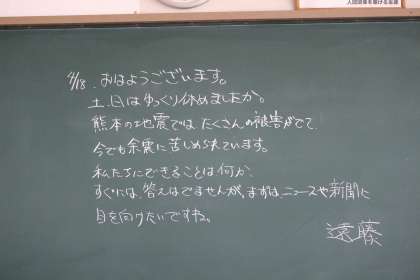 4/18. おはようございます。
土日はゆっくり休めましたか。
熊本の地震ではたくさんの被害がでて、
今でも余震に苦しめられています。
私たちにできることは何か、
すぐには、答えはでませんが、まずは、ニュースや新聞に
目を向けたいですね。
遠藤